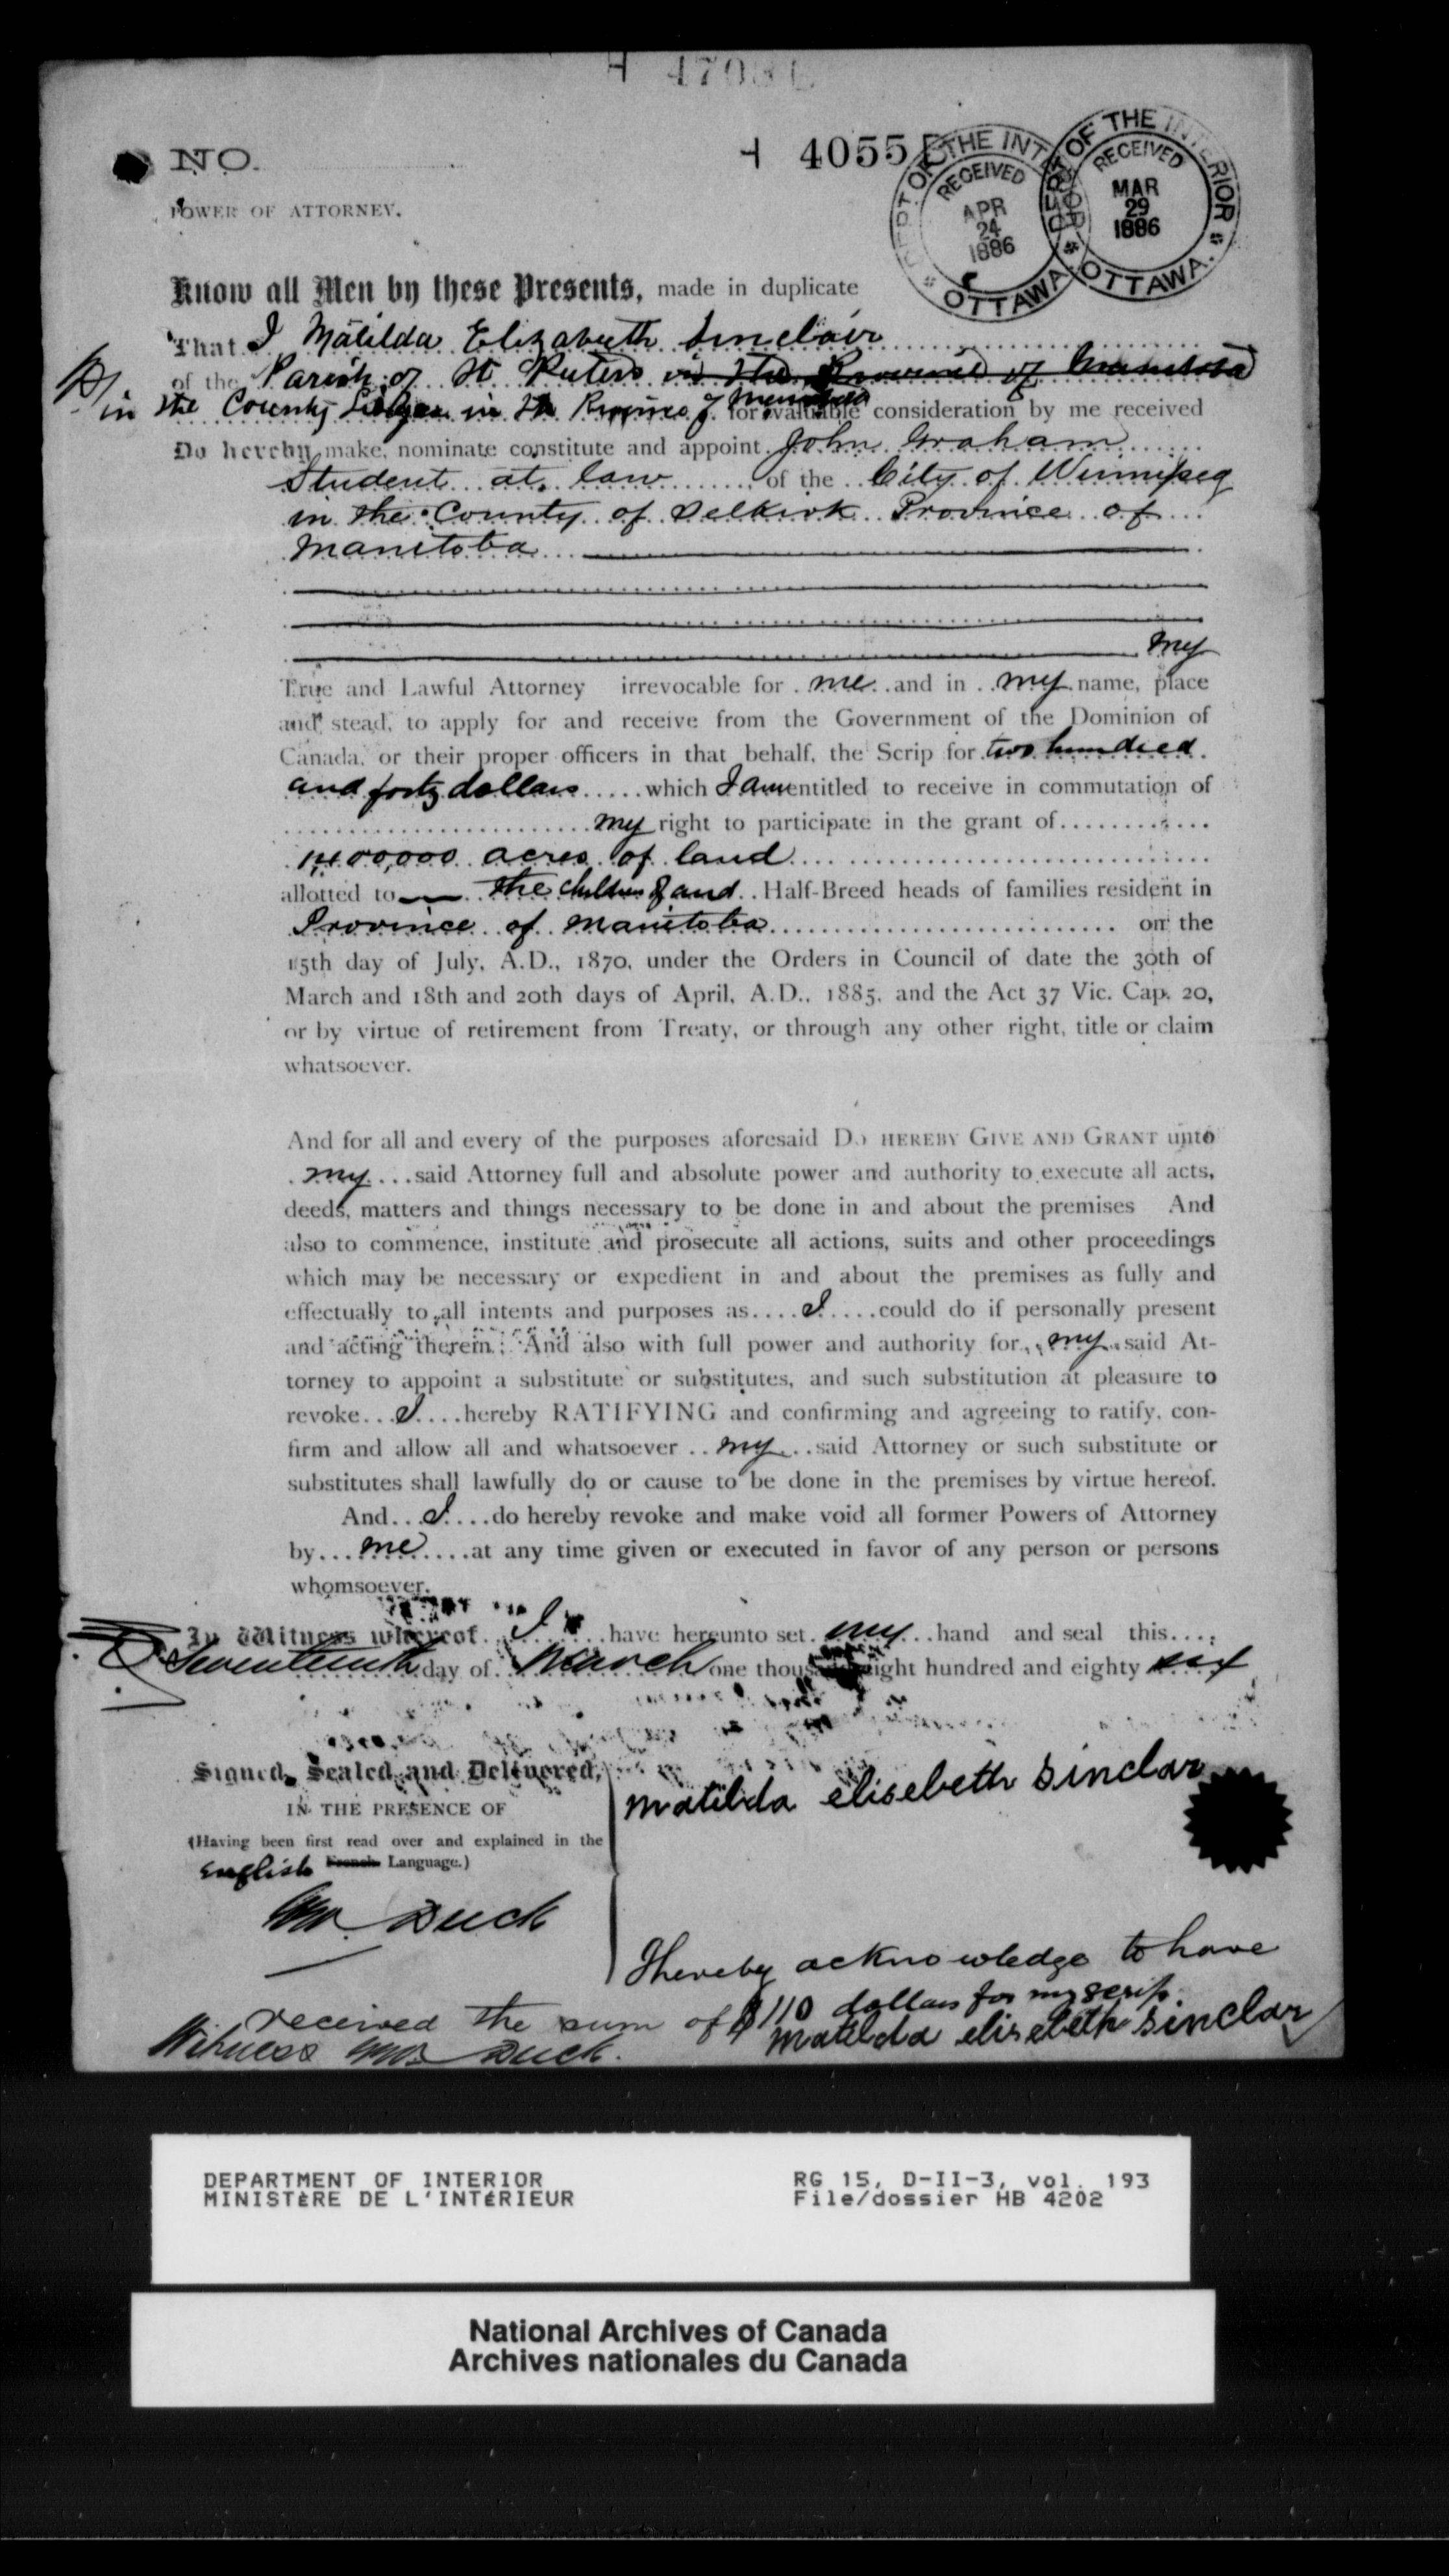 NO.
H 4055
DEPT OF THE INTERIOR
RECEIVED
APR
24
1886
OTTAWA
DEPT OF THE INTERIOR
RECEIVED
MAR
29
1886
OTTAWA.
POWER OF ATTORNEY.
Know all Men by these Presents, made in duplicate
That I Matilda Elizabeth Sinclair
of the Parish of St Peters in the Province of Manitoba
in the County Lisgar in the Province of Manitoba for valuable consideration by me received
Do hereby make, nominate constitute and appoint John Graham
Student at law of the City of Winnipeg
in the County of Selkirk Province of
Manitoba
my
True and Lawful Attorney irrevocable for me and in my name, place
and stead, to apply for and receive from the Government of the Dominion of
Canada, or their proper officers in that behalf, the Scrip for two hundred
and forty dollars which I am entitled to receive in commutation of
my right to participate in the grant of
1,400,000 acres of land
allotted to the children of and Half-Breed heads of families resident in
Province of Manitoba on the
15th day of July, A.D., 1870, under the Orders in Council of date the 30th of
March and 18th and 20th days of April, A.D., 1885, and the Act 37 Vic. Cap. 20,
or by virtue of retirement from Treaty, or through any other right, title or claim
whatsoever.
And for all and every of the purposes aforesaid DO HEREBY GIVE AND GRANT unto
my said Attorney full and absolute power and authority to execute all acts,
deeds, matters and things necessary to be done in and about the premises And
also to commence, institute and prosecute all actions, suits and other proceedings
which may be necessary or expedient in and about the premises as fully and
effectually to all intents and purposes as I could do if personally present
and acting therein; And also with full power and authority for my said At-
torney to appoint a substitute or substitutes, and such substitution at pleasure to
revoke I hereby RATIFYING and confirming and agreeing to ratify, con-
firm and allow all and whatsoever my said Attorney or such substitute or
substitutes shall lawfully do or cause to be done in the premises by virtue hereof.
And I do hereby revoke and make void all former Powers of Attorney
by me at any time given or executed in favor of any person or persons
whomsoever.
In Witness whereof I have hereunto set my hand and seal this
Seventeenth day of March one thousand eight hundred and eighty six
Signed, Sealed and Delivered,
IN THE PRESENCE OF
(Having been first read over and explained in the
English French Language.)
Duck
matilda elisebeth Sinclar
I hereby acknowledge to have
received the sum of $110 dollars for my scrip.
Witness Duck.
matilda elisebeth Sinclar
DEPARTMENT OF INTERIOR
MINISTÈRE DE L'INTÉRIEUR
RG 15, D-II-3, vol. 193
File/dossier HB 4202
National Archives of Canada
Archives nationales du Canada